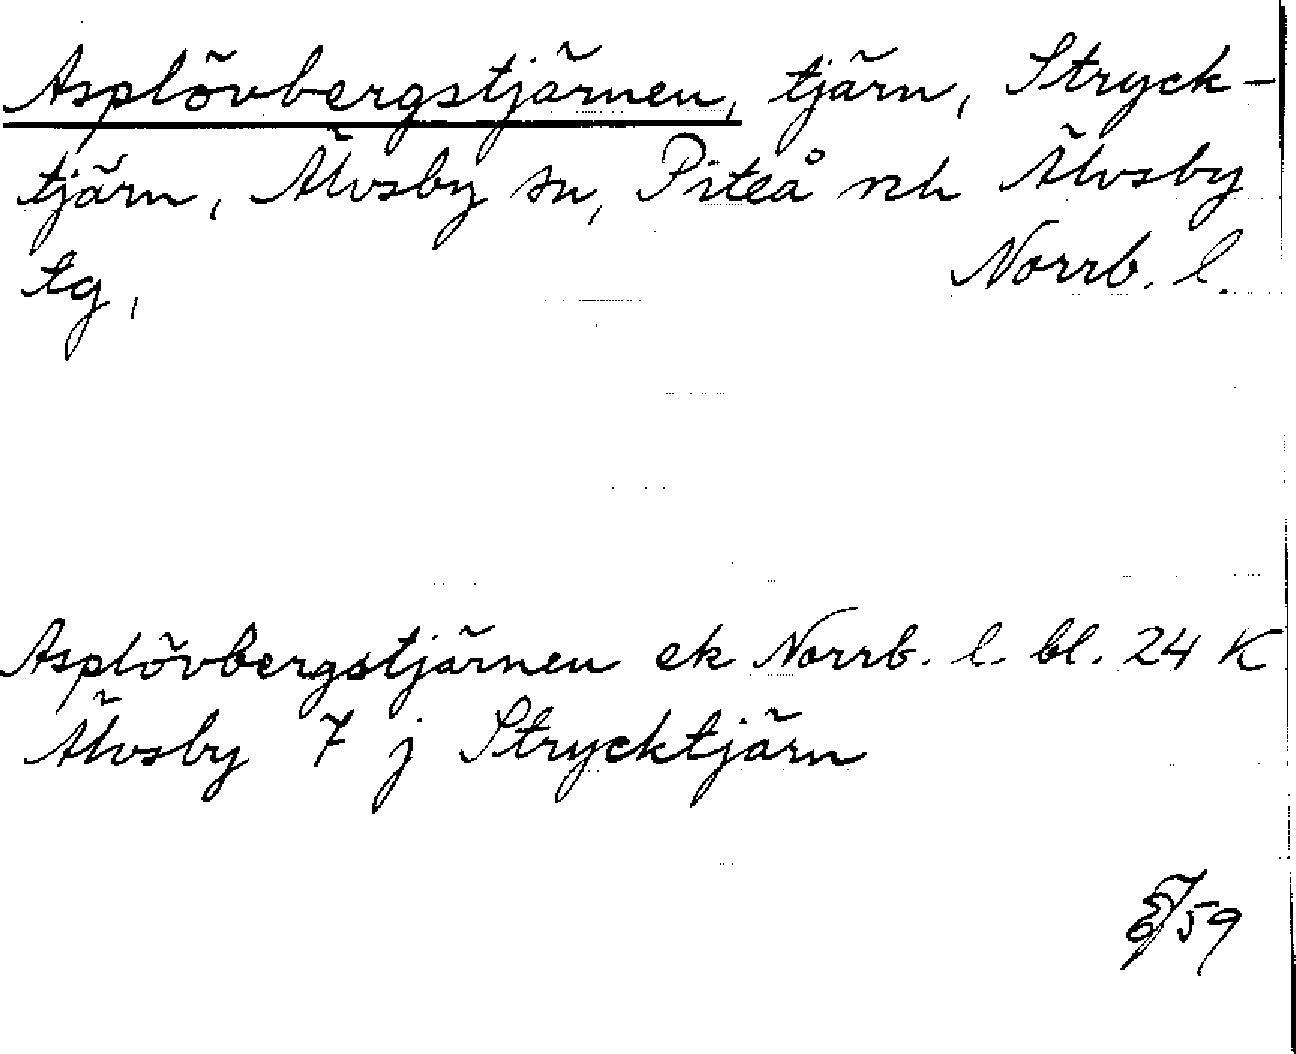 Asplövbergstjärnen, tjärn, Stryck-
tjärn, Älvsby sn, Piteå rch Älvsby
tg, Norrb. l.
Asplövbergstjärnen ek Norrb. l. bl. 24 K
Älvsby 7 j Strycktjärn
59